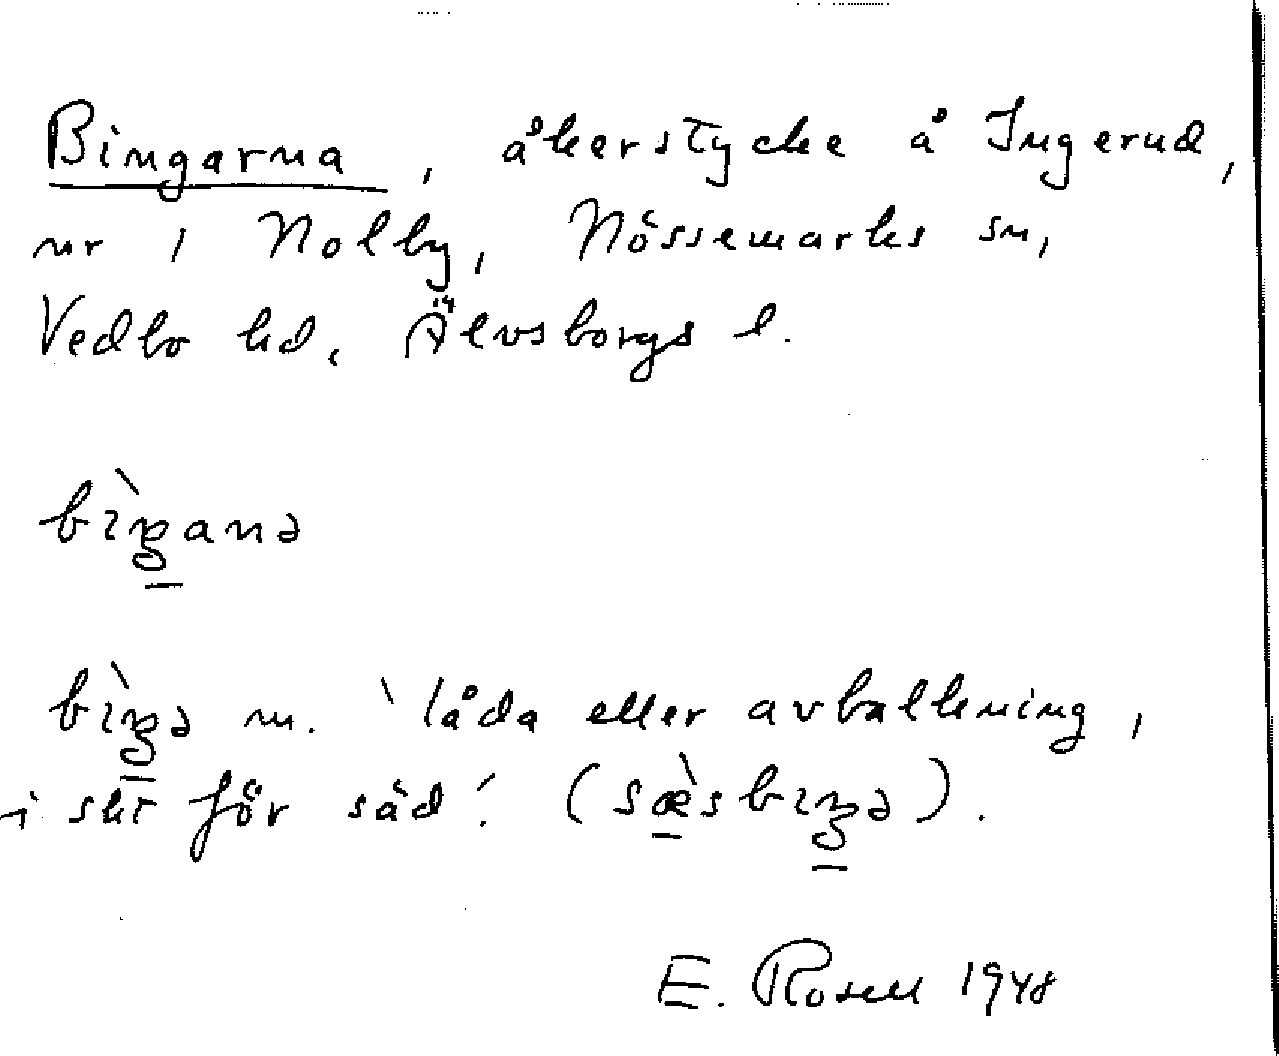 Bingarna, åkerstycke å Ingerud,
nr 1 Nolby, Nössemarks sn,
Vedbo hd, Älvsborgs l.
bìŋanə
bìŋə m. 'låda eller avbalkning,
i skr för säd'. (sæ̀sbɩŋə).
E. Rosell 1948